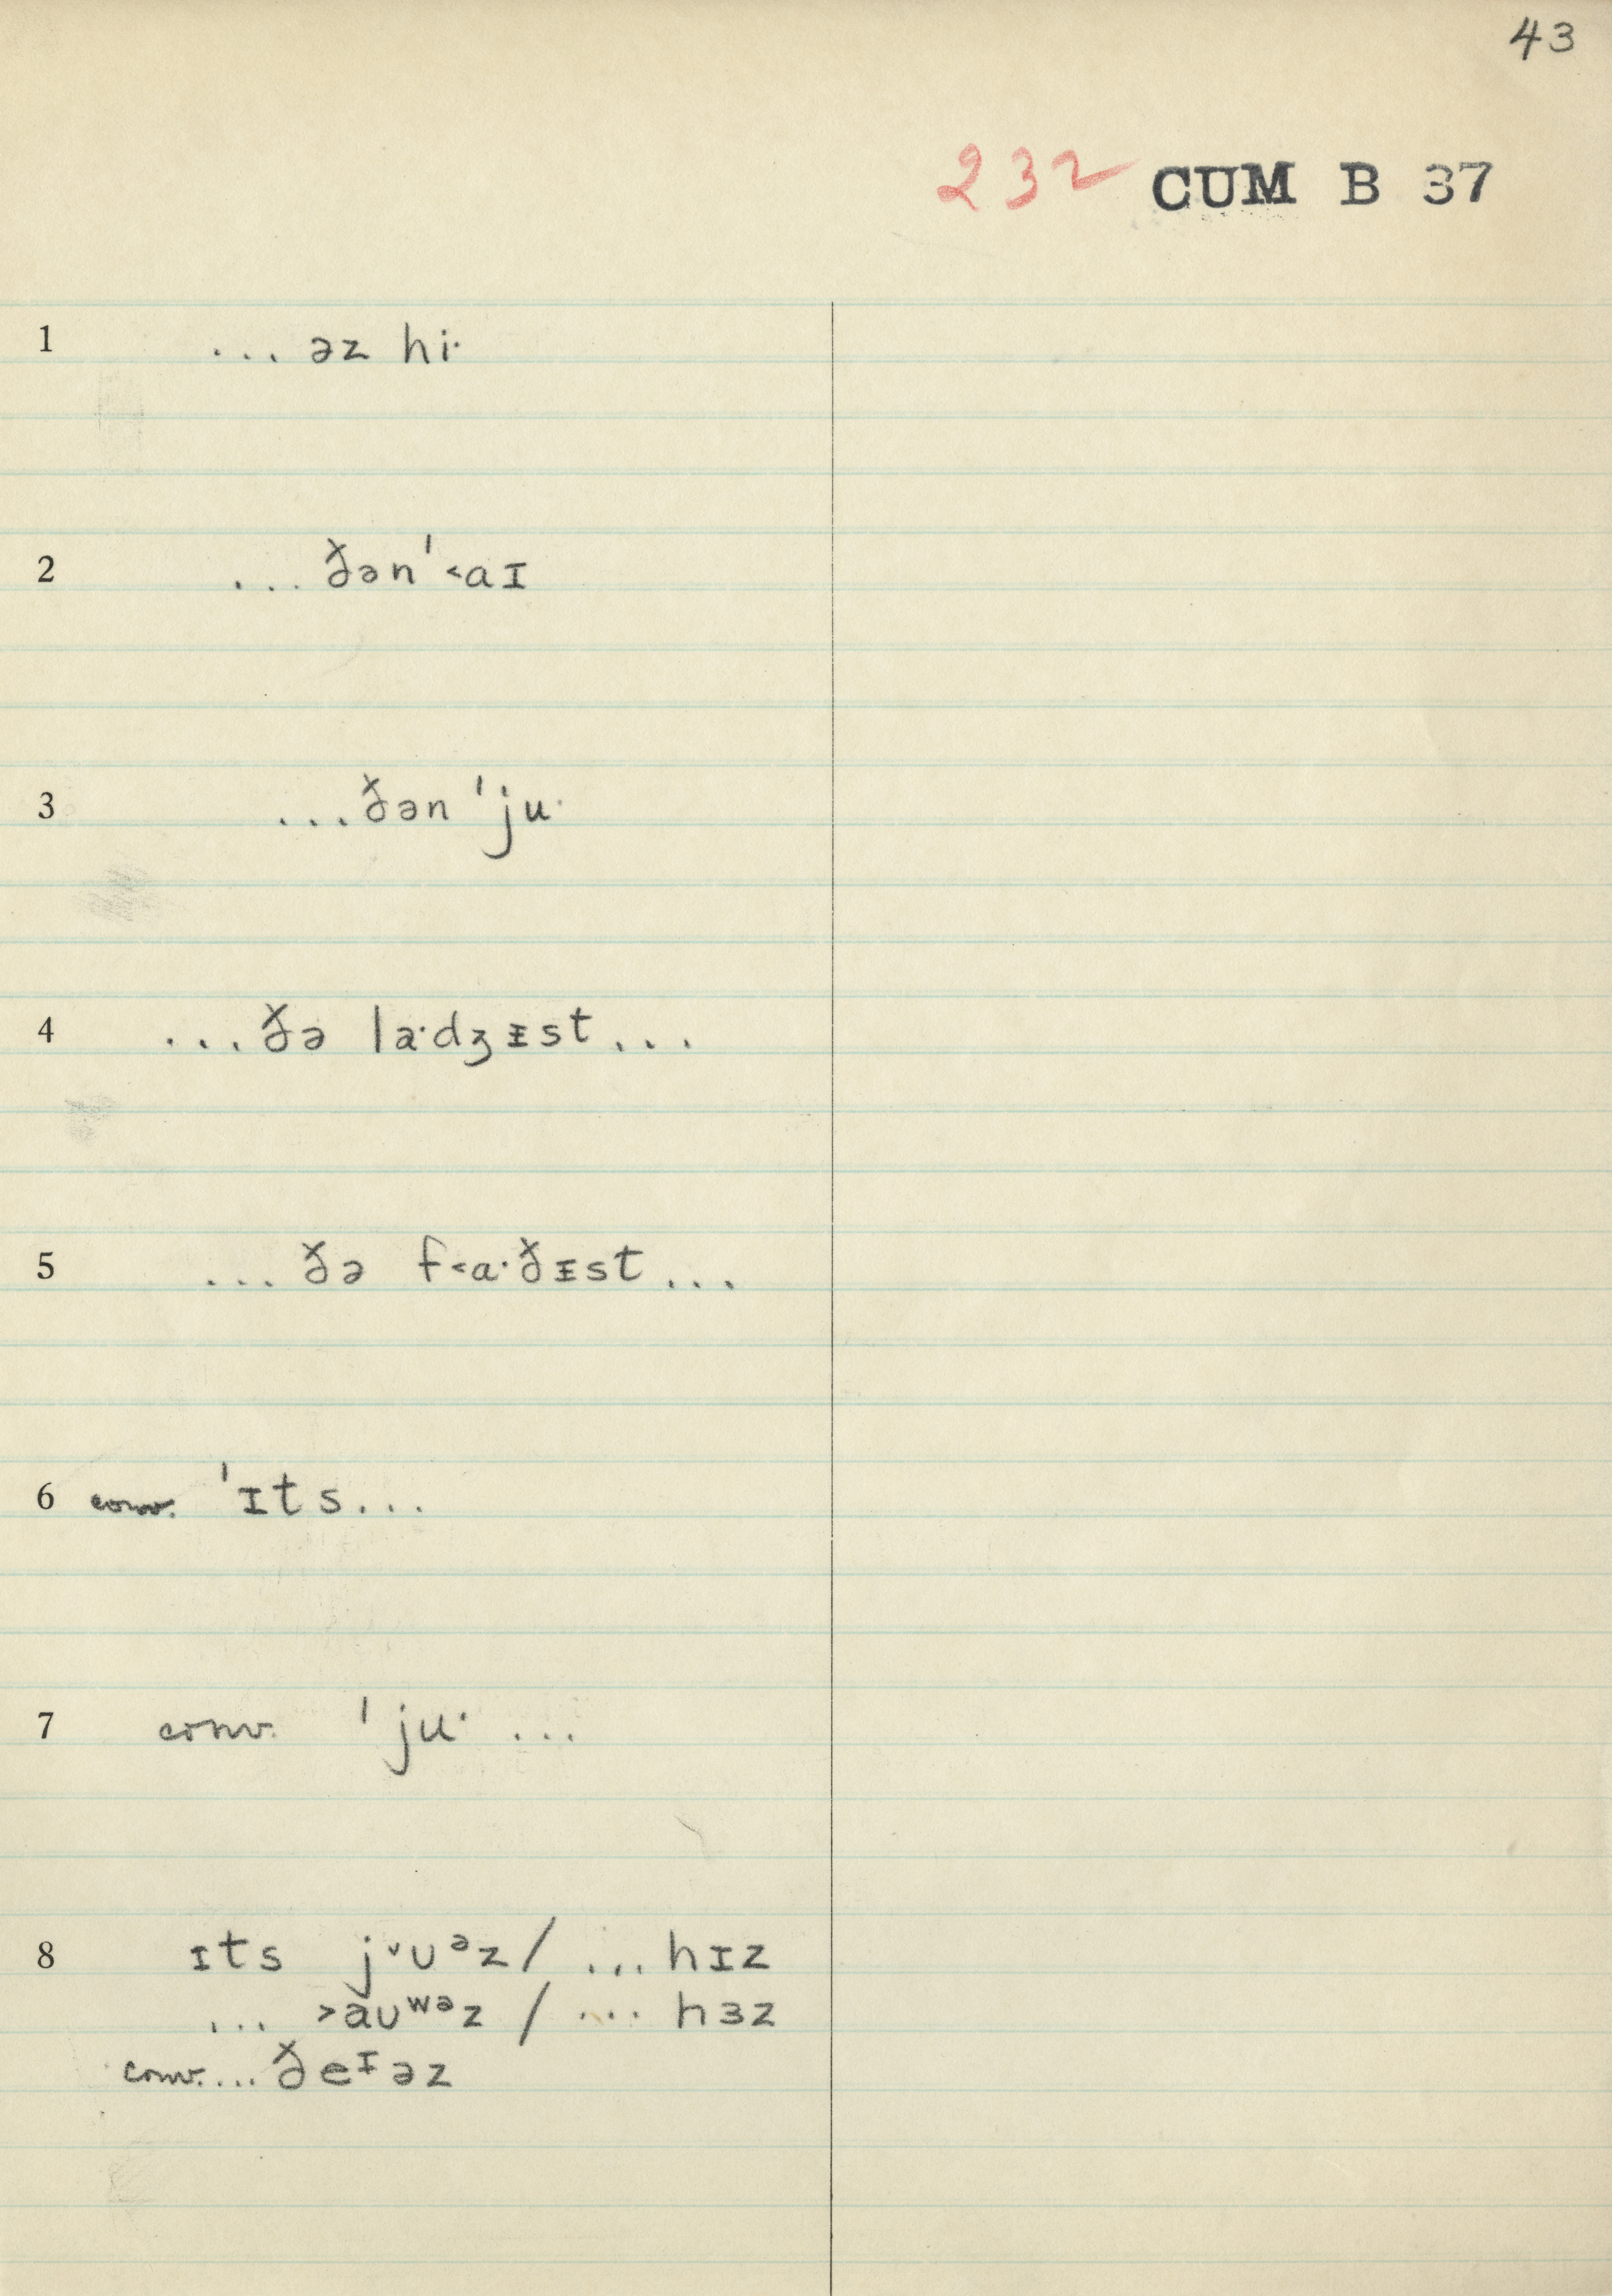 43
232 CUM B 37
1 ... əz hi·
2 ... ðən ˈ˂aɪ
3 ... ðən ˈju·
4 ... ðə la·dʒᵻst ...
5 ... ðə f˂a·ðᵻst ...
6 conv. ˈɪts ...
7 conv. ˈju· ...
8 ɪts j˅ʊᵊz / ... hɪz
... ˃aʊʷᵊz / ... hɜz
conv. ... ðeᶦəz